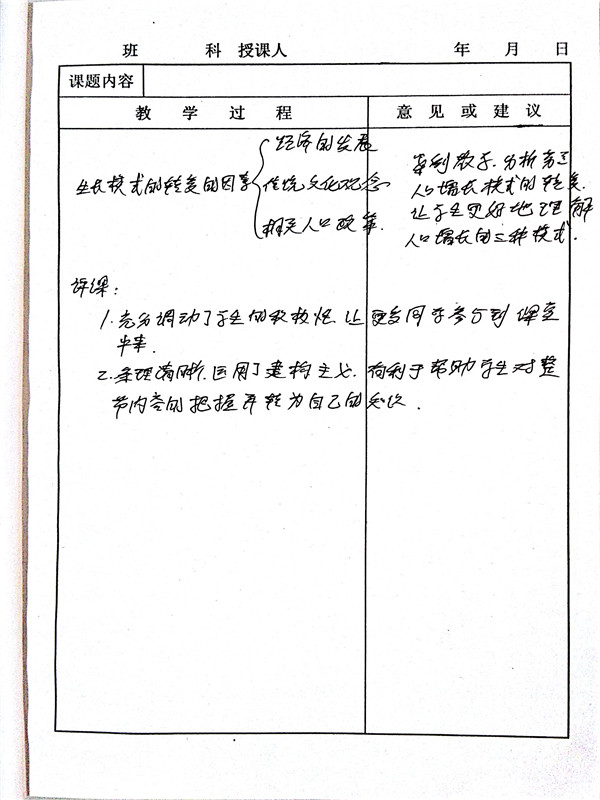 班 科 授课人 年 月 日
课题内容
教 学 过 程 意 见 或 建 议
经济的发展
生长模式的转变的因素 传统文化观念
相关人口政策.
案例教学.分析旁边
人口增长模式的转变.
让学生更好地理解
人口增长的三种模式.
评课:
1.充分调动了学生的积极性.让更多同学参与到课堂
中来.
2.条理清晰.运用了建构主义.有利于帮助学生对整
节内容的把握并转为自己的知识.